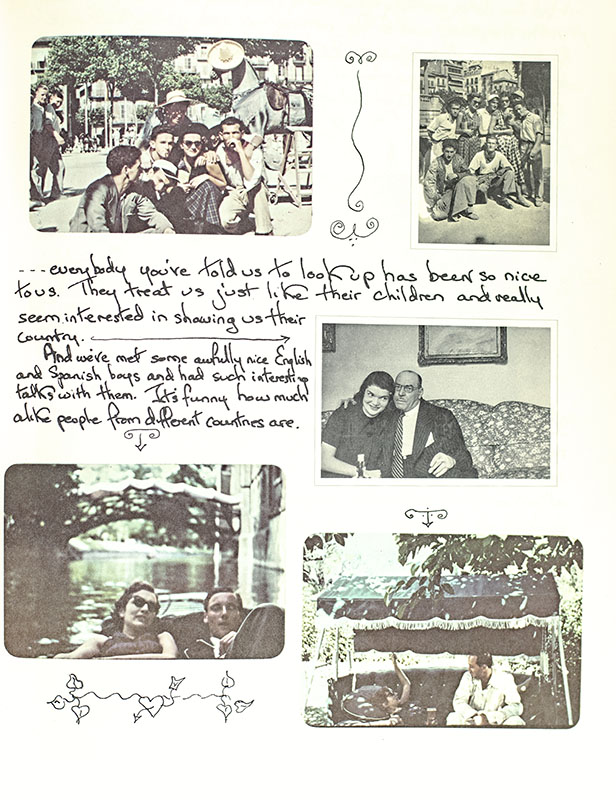 --- everybody you've told us to look up has been so nice
to us. They treat us just like their children and really
seem interested in showing us their
country.
And we've met some awfully nice English
and Spanish boys and had such interesting
talks with them. It's funny how much
alike people from different countries are.